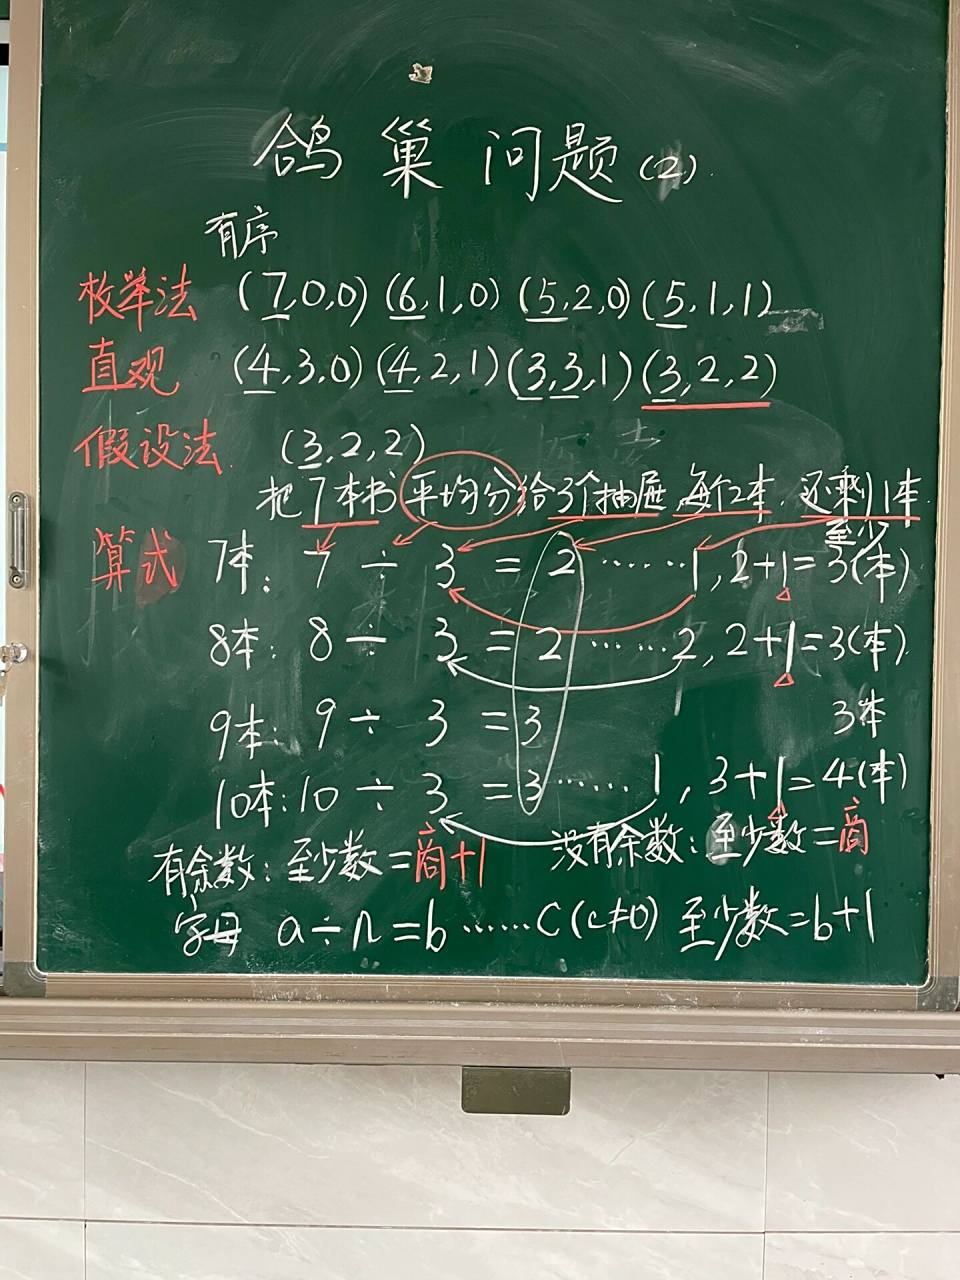 鸽巢问题(2)
有序
枚举法 (7,0,0) (6,1,0) (5,2,0) (5,1,1)
直观 (4,3,0) (4,2,1) (3,3,1) (3,2,2)
假设法 (3,2,2)
把7本书平均分给3个抽屉 每个2本 还剩1本
至少
算式 7本: 7÷3=2……1, 2+1=3(本)
8本: 8÷3=2……2, 2+1=3(本)
9本: 9÷3=3 3本
10本: 10÷3=3……1, 3+1=4(本)
有余数: 至少数=商+1 没有余数: 至少数=商
字母 a÷n=b……c(c≠0) 至少数=b+1